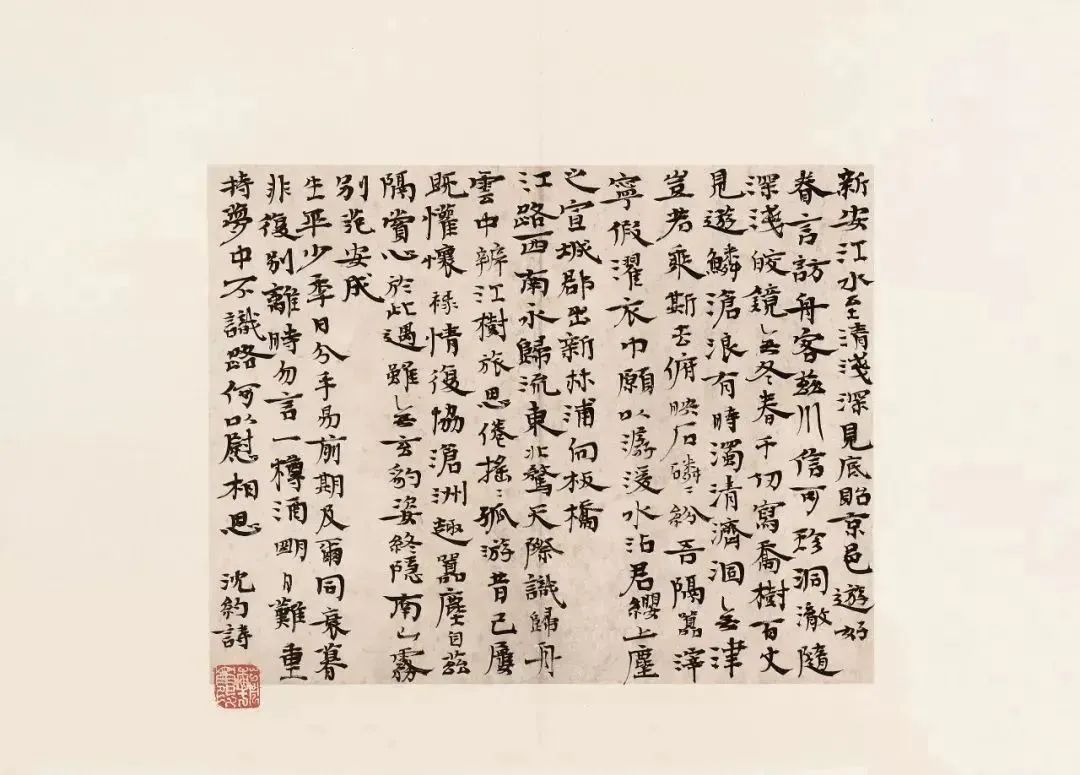 新安江水至清淺深見底貽京邑遊好
眷言訪舟客茲川信可珍洞澈隨
深淺皎鏡无冬春千仞寫喬樹百丈
見遊鱗滄浪有時濁清濟涸无津
豈若乘斯去俯映石磷〻紛吾隔囂滓
寧假濯衣巾願以潺湲水沾君纓上塵
之宣城郡出新林浦向板橋
江路西南永歸流東北騖天際識歸舟
雲中辨江樹旅思倦搖〻孤游昔已屢
既懽懷祿情復協滄洲趣囂塵自茲
隔賞心於此遇雖无玄豹姿終隱南山霧
別范安成
生平少年日分手易前期及爾同衰暮
非復別離時勿言一樽酒明日難重
持夢中不識路何以慰相思 沈約詩